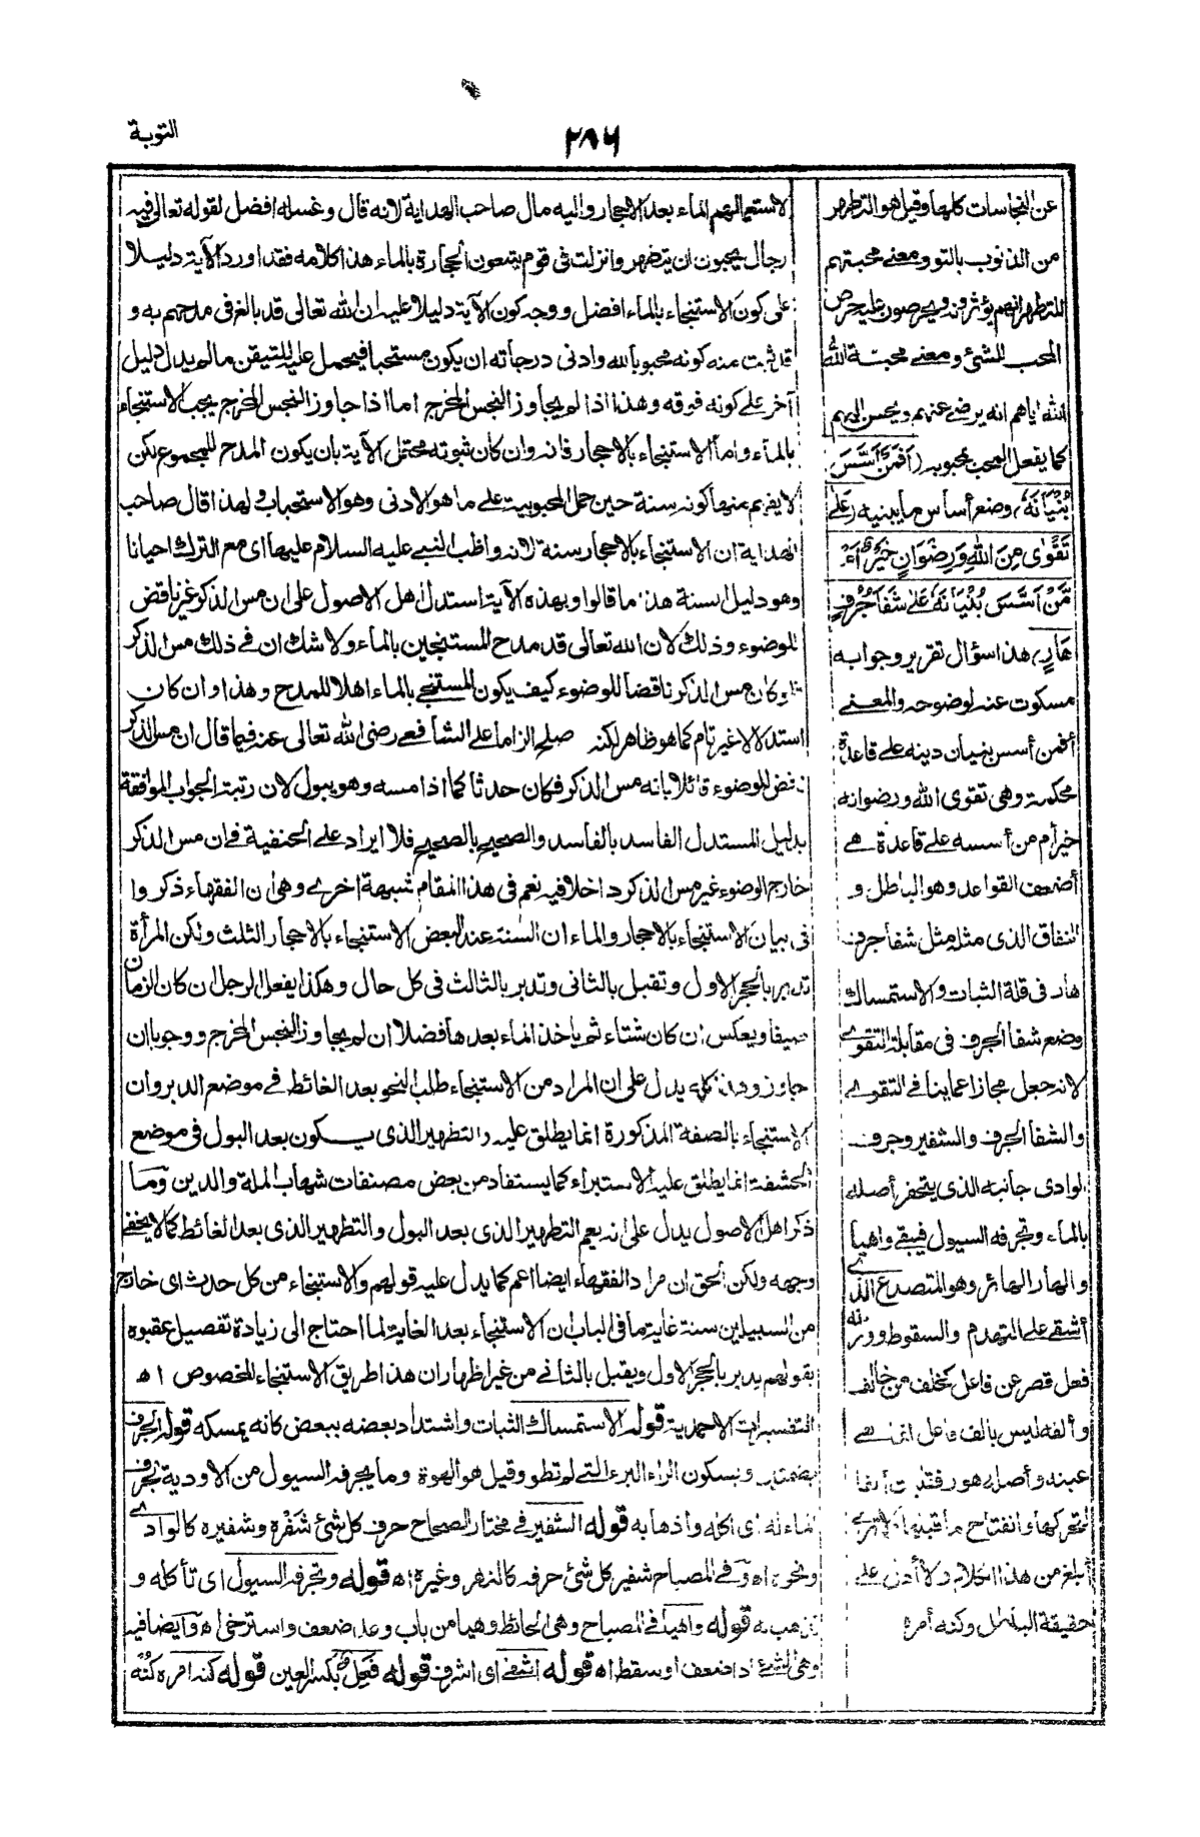 التوبة
٢٨٦
عن النجاسات كلها وقيل هو التطهر
من الذنوب بالتو ومعنى محبتهم
للتطهر انهم يؤثرونه ويحرصون عليه حرص
المحب للشئ ومعنى محبة الله
الله اياهم انه يرضى عنهم ويحسن اليهم
كما يفعل المحب بمحبوبه (أَفَمَنْ أَسَّسَ
بُنْيَانَهُ) وضع أساس ما يبنيه (عَلَى
تَقْوٰى مِنَ اللّٰهِ وَرِضْوَانٍ خَيْرٌ أَمْ
مَّنْ أَسَّسَ بُنْيَانَهُ عَلٰى شَفَا جُرُفٍ
هَارٍ) هذا سؤال تقرير وجوابه
مسكوت عنه لوضوحه والمعنى
أفمن أسس بنيان دينه على قاعدة
محكمة وهى تقوى الله ورضوانه
خير أم من أسسه على قاعدة هى
أضعف القواعد وهو الباطل و
النفاق الذى مثله مثل شفا جرف
هار فى قلة الثبات والاستمساك
وضع شفا الجرف فى مقابلة التقوى
لانه جعل مجازا عما ينافى التقوى
والشفا الجرف والشفير وجرف
الوادى جانبه الذى يتحفر أصله
بالماء وتجرفه السيول فيبقى واهيا
والهار الهائر وهو المتصدع الذى
أشفى على التهدم والسقوط ووزنه
فعل قصر عن فاعل كخلف من خالف
وألفه ليس بألف فاعل انما هى
عينه وأصله هور فقلبت ألفا
لتحركها وانفتاح ما قبلها ولا ترى
أبلغ من هذا الكلام ولا أدل على
حقيقة الباطل وكنه أمره
لاستعمالهم الماء بعد الاحجار واليه مال صاحب الهداية لانه قال وغسله افضل لقوله تعالى فيه
رجال يحبون ان يتطهروا نزلت فى قوم يتبعون الحجارة بالماء هذا كلامه فقد اورد الآية دليلا
على كون الاستنجاء بالماء افضل ووجه كون الآية دليلا عليه ان الله تعالى قد بالغ فى مدحهم به و
قد ثبت منه كونه محبوبا لله وادنى درجاته ان يكون مستحبا فيحمل عليه للتيقن ما لم يدل دليل
آخر على كونه فوقه وهذا اذا لم يجاوز النجس المخرج اما اذا جاوز النجس المخرج يجب الاستنجاء
بالماء واما الاستنجاء بالاحجار فانه وان كان ثبوته محتمل الآية بان يكون المدح للمجموع لكن
لا يفهم منها كونه سنة حين حمل المحبوبية على ما هو الادنى وهو الاستحباب ولهذا قال صاحب
الهداية ان الاستنجاء بالاحجار سنة لانه واظب النبى عليه السلام عليها اى مع الترك احيانا
وهو دليل السنة هذا ما قالوا وبهذه الآية استدل اهل الاصول على ان مس الذكر غير ناقض
للوضوء وذلك لان الله تعالى قد مدح المستنجين بالماء ولا شك ان فى ذلك مس الذكر
فلو كان مس الذكر ناقضا للوضوء كيف يكون المستنجى بالماء اهلا للمدح وهذا وان كان
استدلالا غير تام كما هو ظاهر لكنه صلح الزاما على الشافعى رضى الله تعالى عنه فيما قال ان مس الذكر
نقض للوضوء قائلا بانه مس الذكر فكان حدثا كما اذا مسه وهو يبول لان رتبة الجواب الموافقة
بدليل المستدل الفاسد بالفاسد والصحيح بالصحيح فلا ايراد على الحنفية فان مس الذكر
خارج الوضوء غير مس الذكر داخلا فيه نعم فى هذا المقام شبهة اخرى وهى ان الفقهاء ذكروا
فى بيان الاستنجاء بالاحجار والماء ان السنة عند البعض الاستنجاء بالاحجار الثلث ولكن المرأة
تدبر بالحجر الاول وتقبل بالثانى وتدبر بالثالث فى كل حال وهكذا يفعل الرجل ان كان الزمان
صيفا ويعكس ان كان شتاء ثم ياخذ الماء بعدها فضلا ان لم يجاوز النجس المخرج ووجوبا ان
جاوز وهذا كله يدل على ان المراد من الاستنجاء طلب النجو بعد الغائط فى موضع الدبر وان
الاستنجاء بالصفة المذكورة انما يطلق عليه والتطهير الذى يكون بعد البول فى موضع
الحشفة انما يطلق عليه الاستبراء كما يستفاد من بعض مصنفات شهاب الملة والدين وما
ذكر اهل الاصول يدل على انه يعم التطهير الذى بعد البول والتطهير الذى بعد الغائط كما لا يخفى
وجهه ولكن الحق ان مراد الفقهاء ايضا اعم كما يدل عليه قولهم والاستنجاء من كل حدث اى خارج
من السبيلين سنة غاية ما فى الباب ان الاستنجاء بعد الغائط لما احتاج الى زيادة تفصيل عقبوه
بقولهم يدبر بالحجر الاول ويقبل بالثانى من غير اظهار ان هذا طريق الاستنجاء المخصوص اه
التفسيرات الاحمدية قوله الاستمساك الثبات واشتداد بعضه ببعض كانه يمسكه قوله الجرف
بضمتين وبسكون الراء البئر التى لم تطو وقيل هو الهوة وما يجرفه السيول من الاودية لجرف
الماء له اى اكله واذهابه قوله الشفير فى مختار الصحاح حرف كل شئ شفره وشفيره كالوادى
ونحوه اه وفى المصباح شفير كل شئ حرفه كالنهر وغيره اه قوله وتجرفه السيول اى تأكله و
تذهب به قوله واهيا فى المصباح وهى الحائط وهيا من باب وعد ضعف واسترخى اه وايضا فيه
وهى الشئ اذا ضعف او سقط اه قوله اشفى اى اشرف قوله فعل بكسر العين قوله كنه امره كُنْهُ